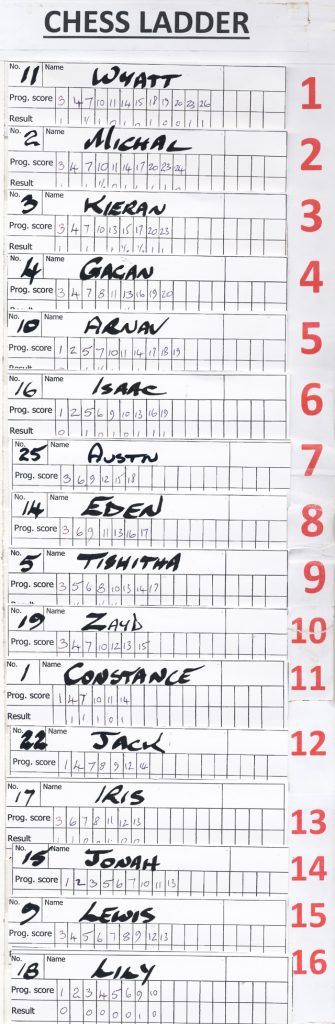 CHESS LADDER
No. 11 Name WYATT 1
Prog. score 3 4 7 10 11 14 15 18 19 20 23 26
Result
No. 2 Name MICHAL 2
Prog. score 3 4 7 10 11 14 17 20 23 24
Result
No. 3 Name KIERAN 3
Prog. score 3 4 7 10 13 15 17 20 23
Result
No. 4 Name GAGAN 4
Prog. score 3 4 7 8 11 13 16 19 20
No. 10 Name ARNAV 5
Prog. score 1 2 5 7 10 11 14 17 18 19
No. 16 Name ISAAC 6
Prog. score 1 2 5 6 9 10 13 16 19
Result
No. 25 Name AUSTIN 7
Prog. score 3 6 9 12 15 18
No. 14 Name EDEN 8
Prog. score 3 6 9 11 13 16 17
No. 5 Name TISHITHA 9
Prog. score 3 5 6 8 10 13 14 17
No. 19 Name ZAYD 10
Prog. score 3 4 7 10 12 13 15
No. 1 Name CONSTANCE 11
Prog. score 1 4 7 10 11 14
Result 1 1 1 0 1
No. 22 Name JACK 12
Prog. score 1 4 7 8 9 12 14
No. 17 Name IRIS 13
Prog. score 3 6 7 8 11 12 13
Result
No. 15 Name JONAH 14
Prog. score 1 2 3 5 6 7 10 11 13
No. 9 Name LEWIS 15
Prog. score 3 4 5 6 7 8 9 12 13
No. 18 Name LILY 16
Prog. score 1 2 3 4 5 6 9 10
Result 0 0 0 0 0 1 0